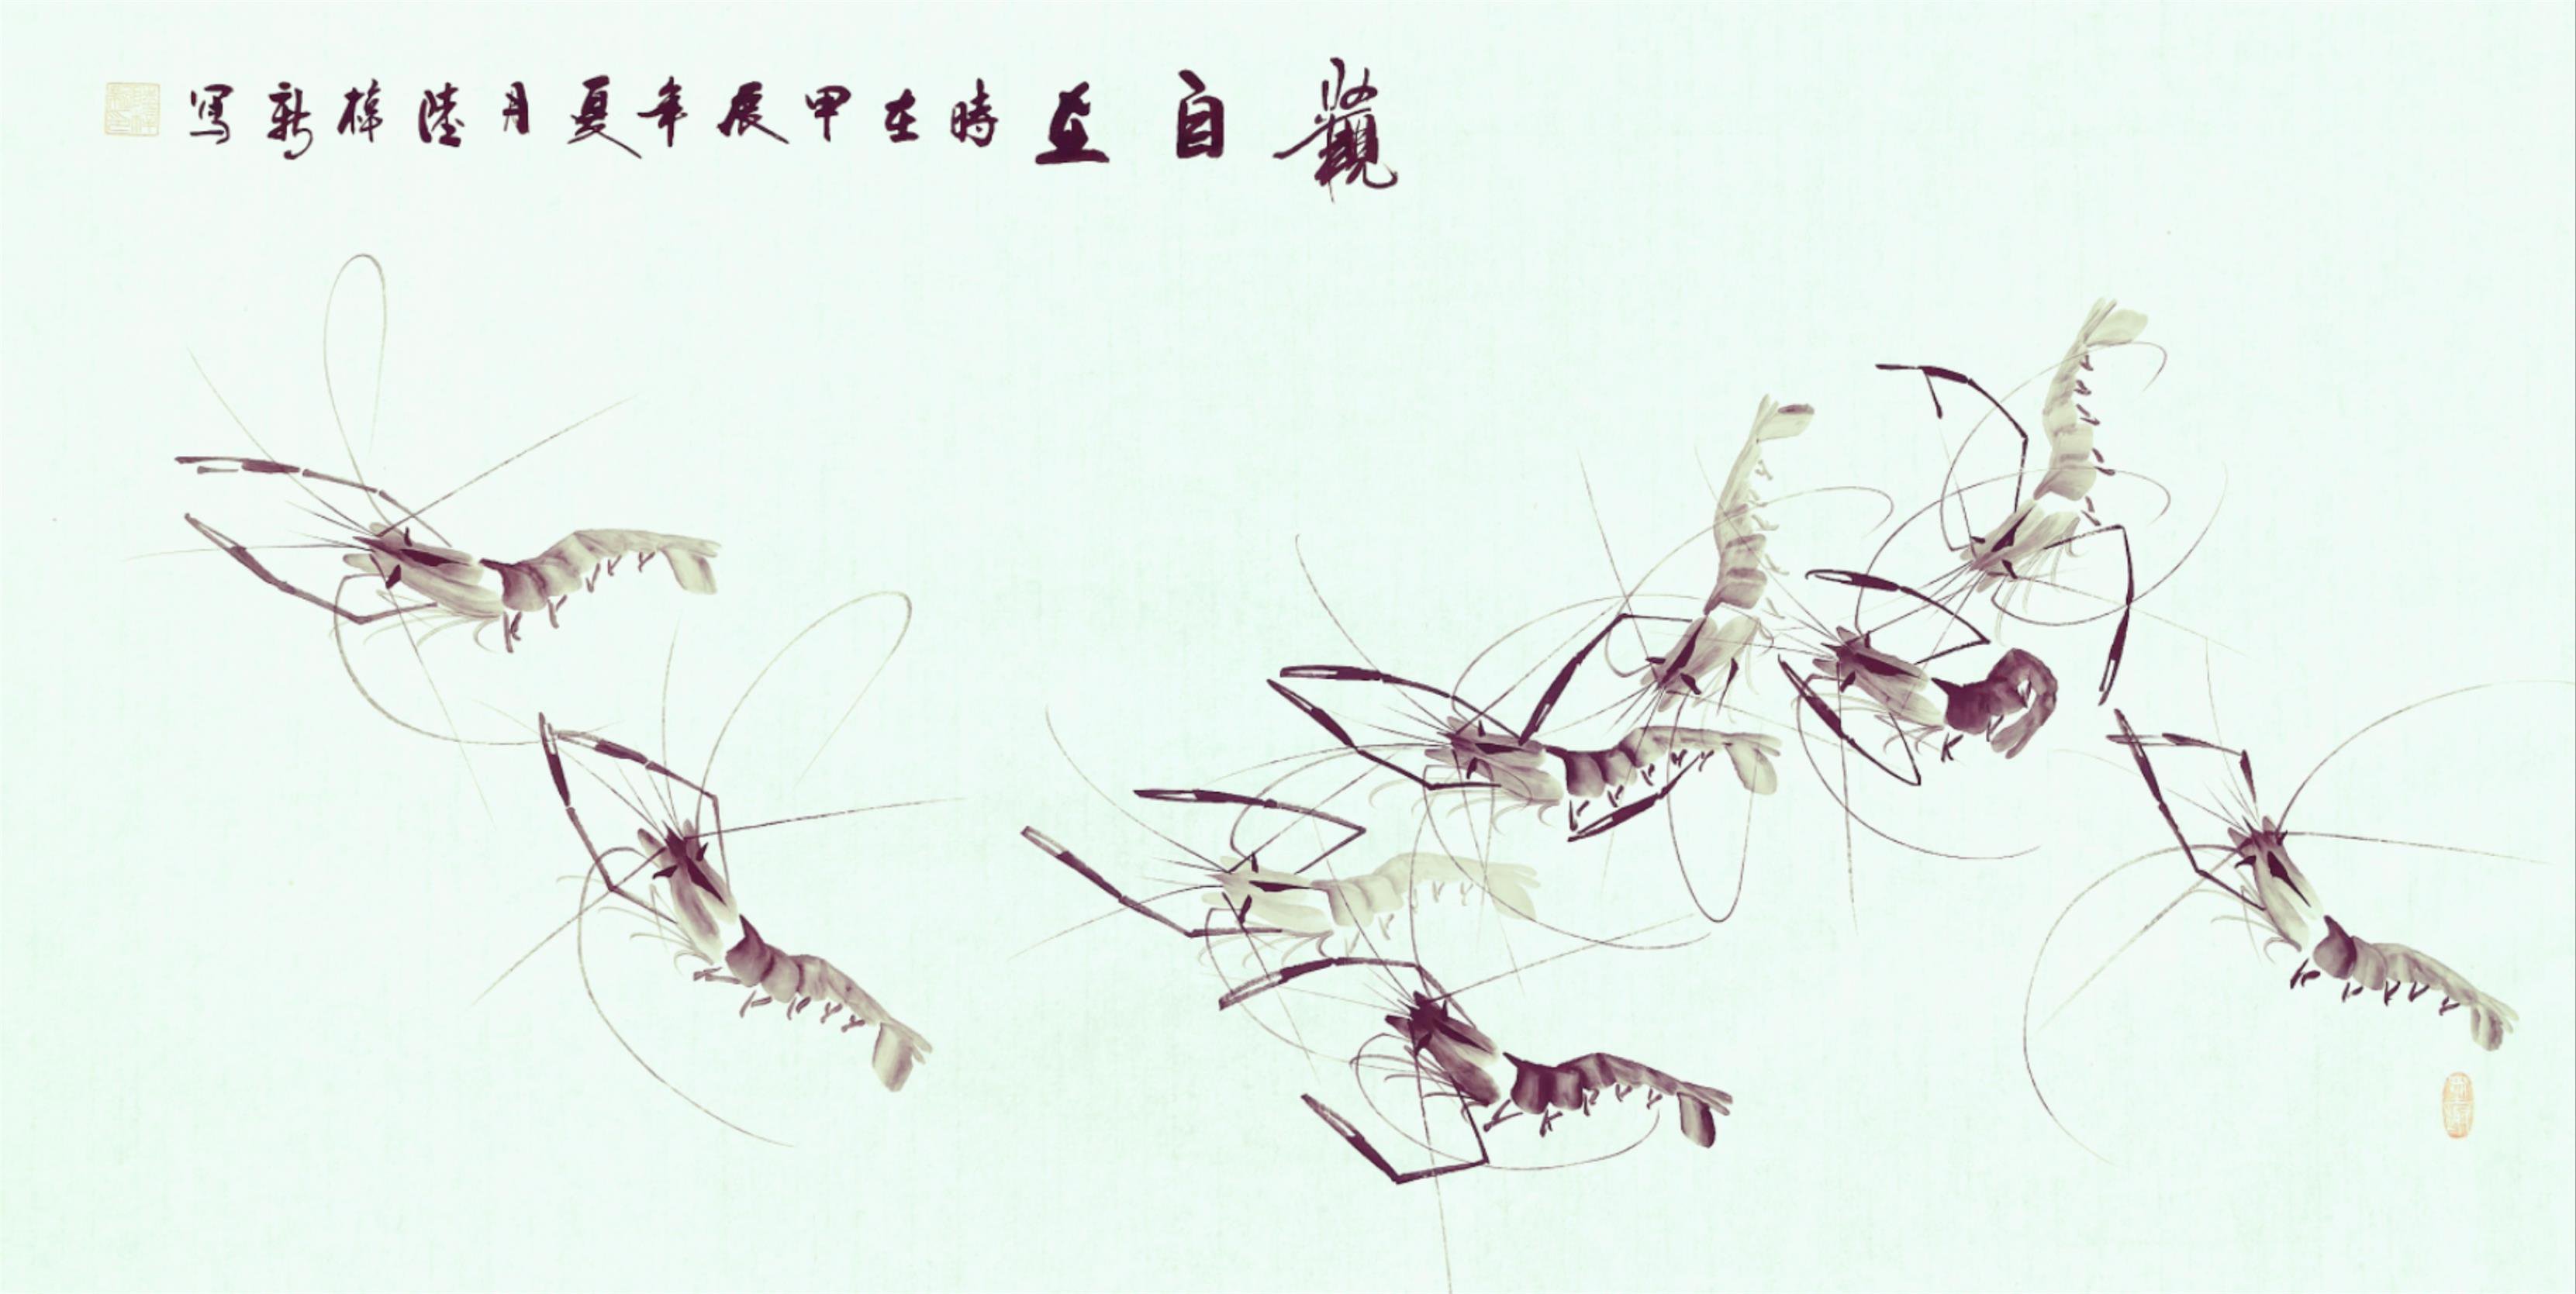 觀自在時在甲辰年夏月陸樟新寫